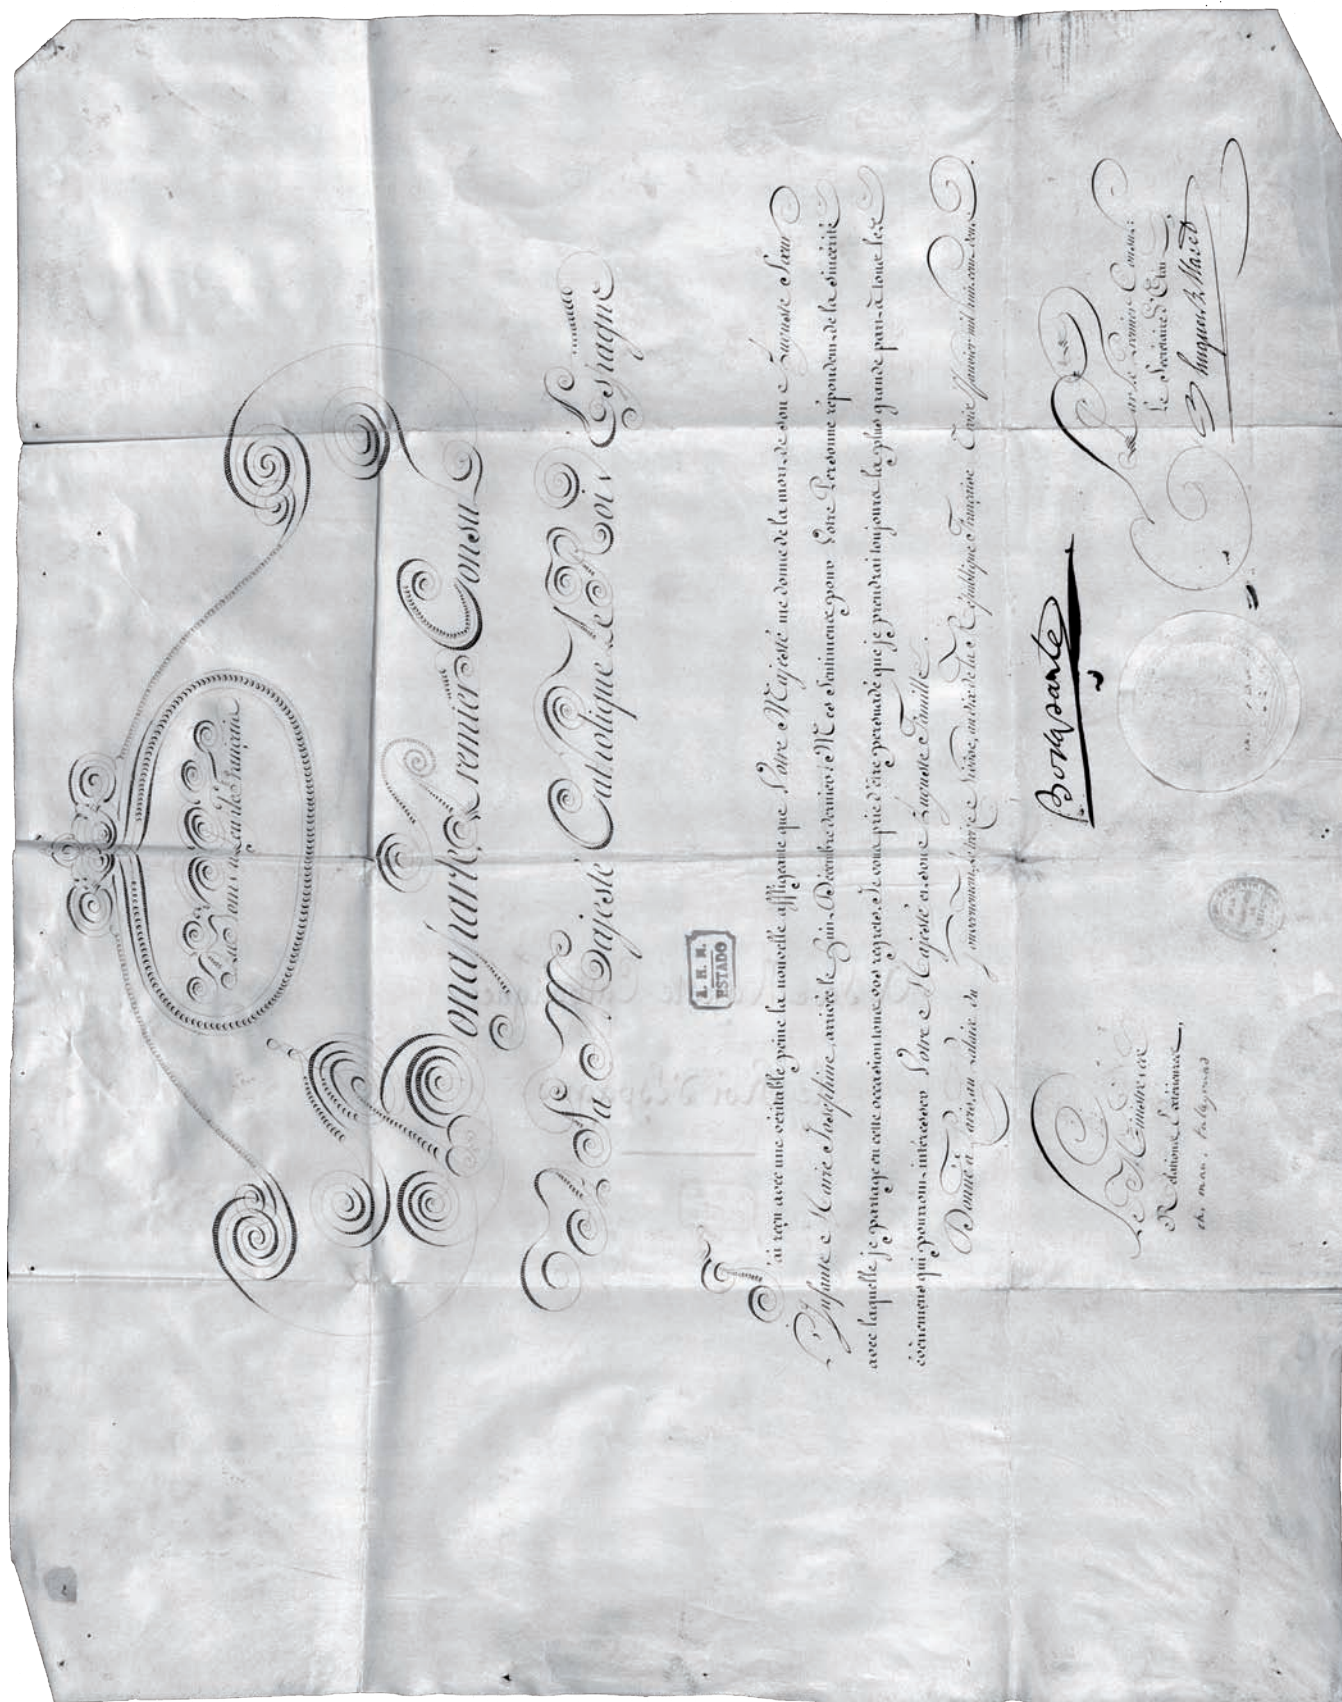 Au Nom du Peuple Français
Bonaparte, Premier Consul
À Sa Majesté Catholique Le Roi d'Espagne
A. H. N.
ESTADO
J'ai reçu avec une véritable peine la nouvelle affligeante que Votre Majesté me donne de la mort de son Auguste Sœur
L'Infante Marie Josephine, arrivée le huit Décembre dernier. Mes Sentimens pour Votre Personne répondent de la sincérité
avec laquelle je partage en cette occasion tous vos regrets. Je vous prie d'être persuadé que je prendrai toujours la plus grande part à tous les
évènemens qui pourront intéresser Votre Majesté et son Auguste Famille.
Donné à Paris, au palais du Gouvernement, le treize Nivôse, an dix de la République Française Trois Janvier mil huit cent deux
Bonaparte
Le Ministre des
Relations Extérieures,
ch. mau. talleyrand
Par le Premier Consul:
le Secrétaire d'Etat,
Hugues B. Maret